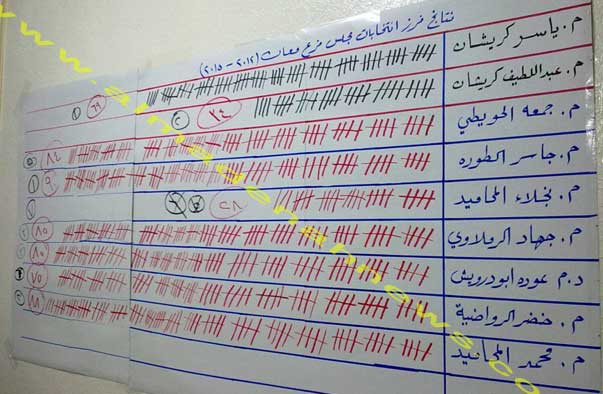 نتائج فرز انتخابات مجلس فرع معان (٢٠١٢ - ٢٠١٥)
م. ياسر كريشان
٦٩
م. عبداللطيف كريشان
٧٤
م. جمعه الحويطي
٨٤
م. جاسر الطوره
٩٠
م. نجلاء المحاميد
٣٨
م. جهاد الرملاوي
٨٥
د.م عوده ابودرويش
٨٠
م. خضر الرواضية
٧٥
م. محمد المحاميد
٨٨